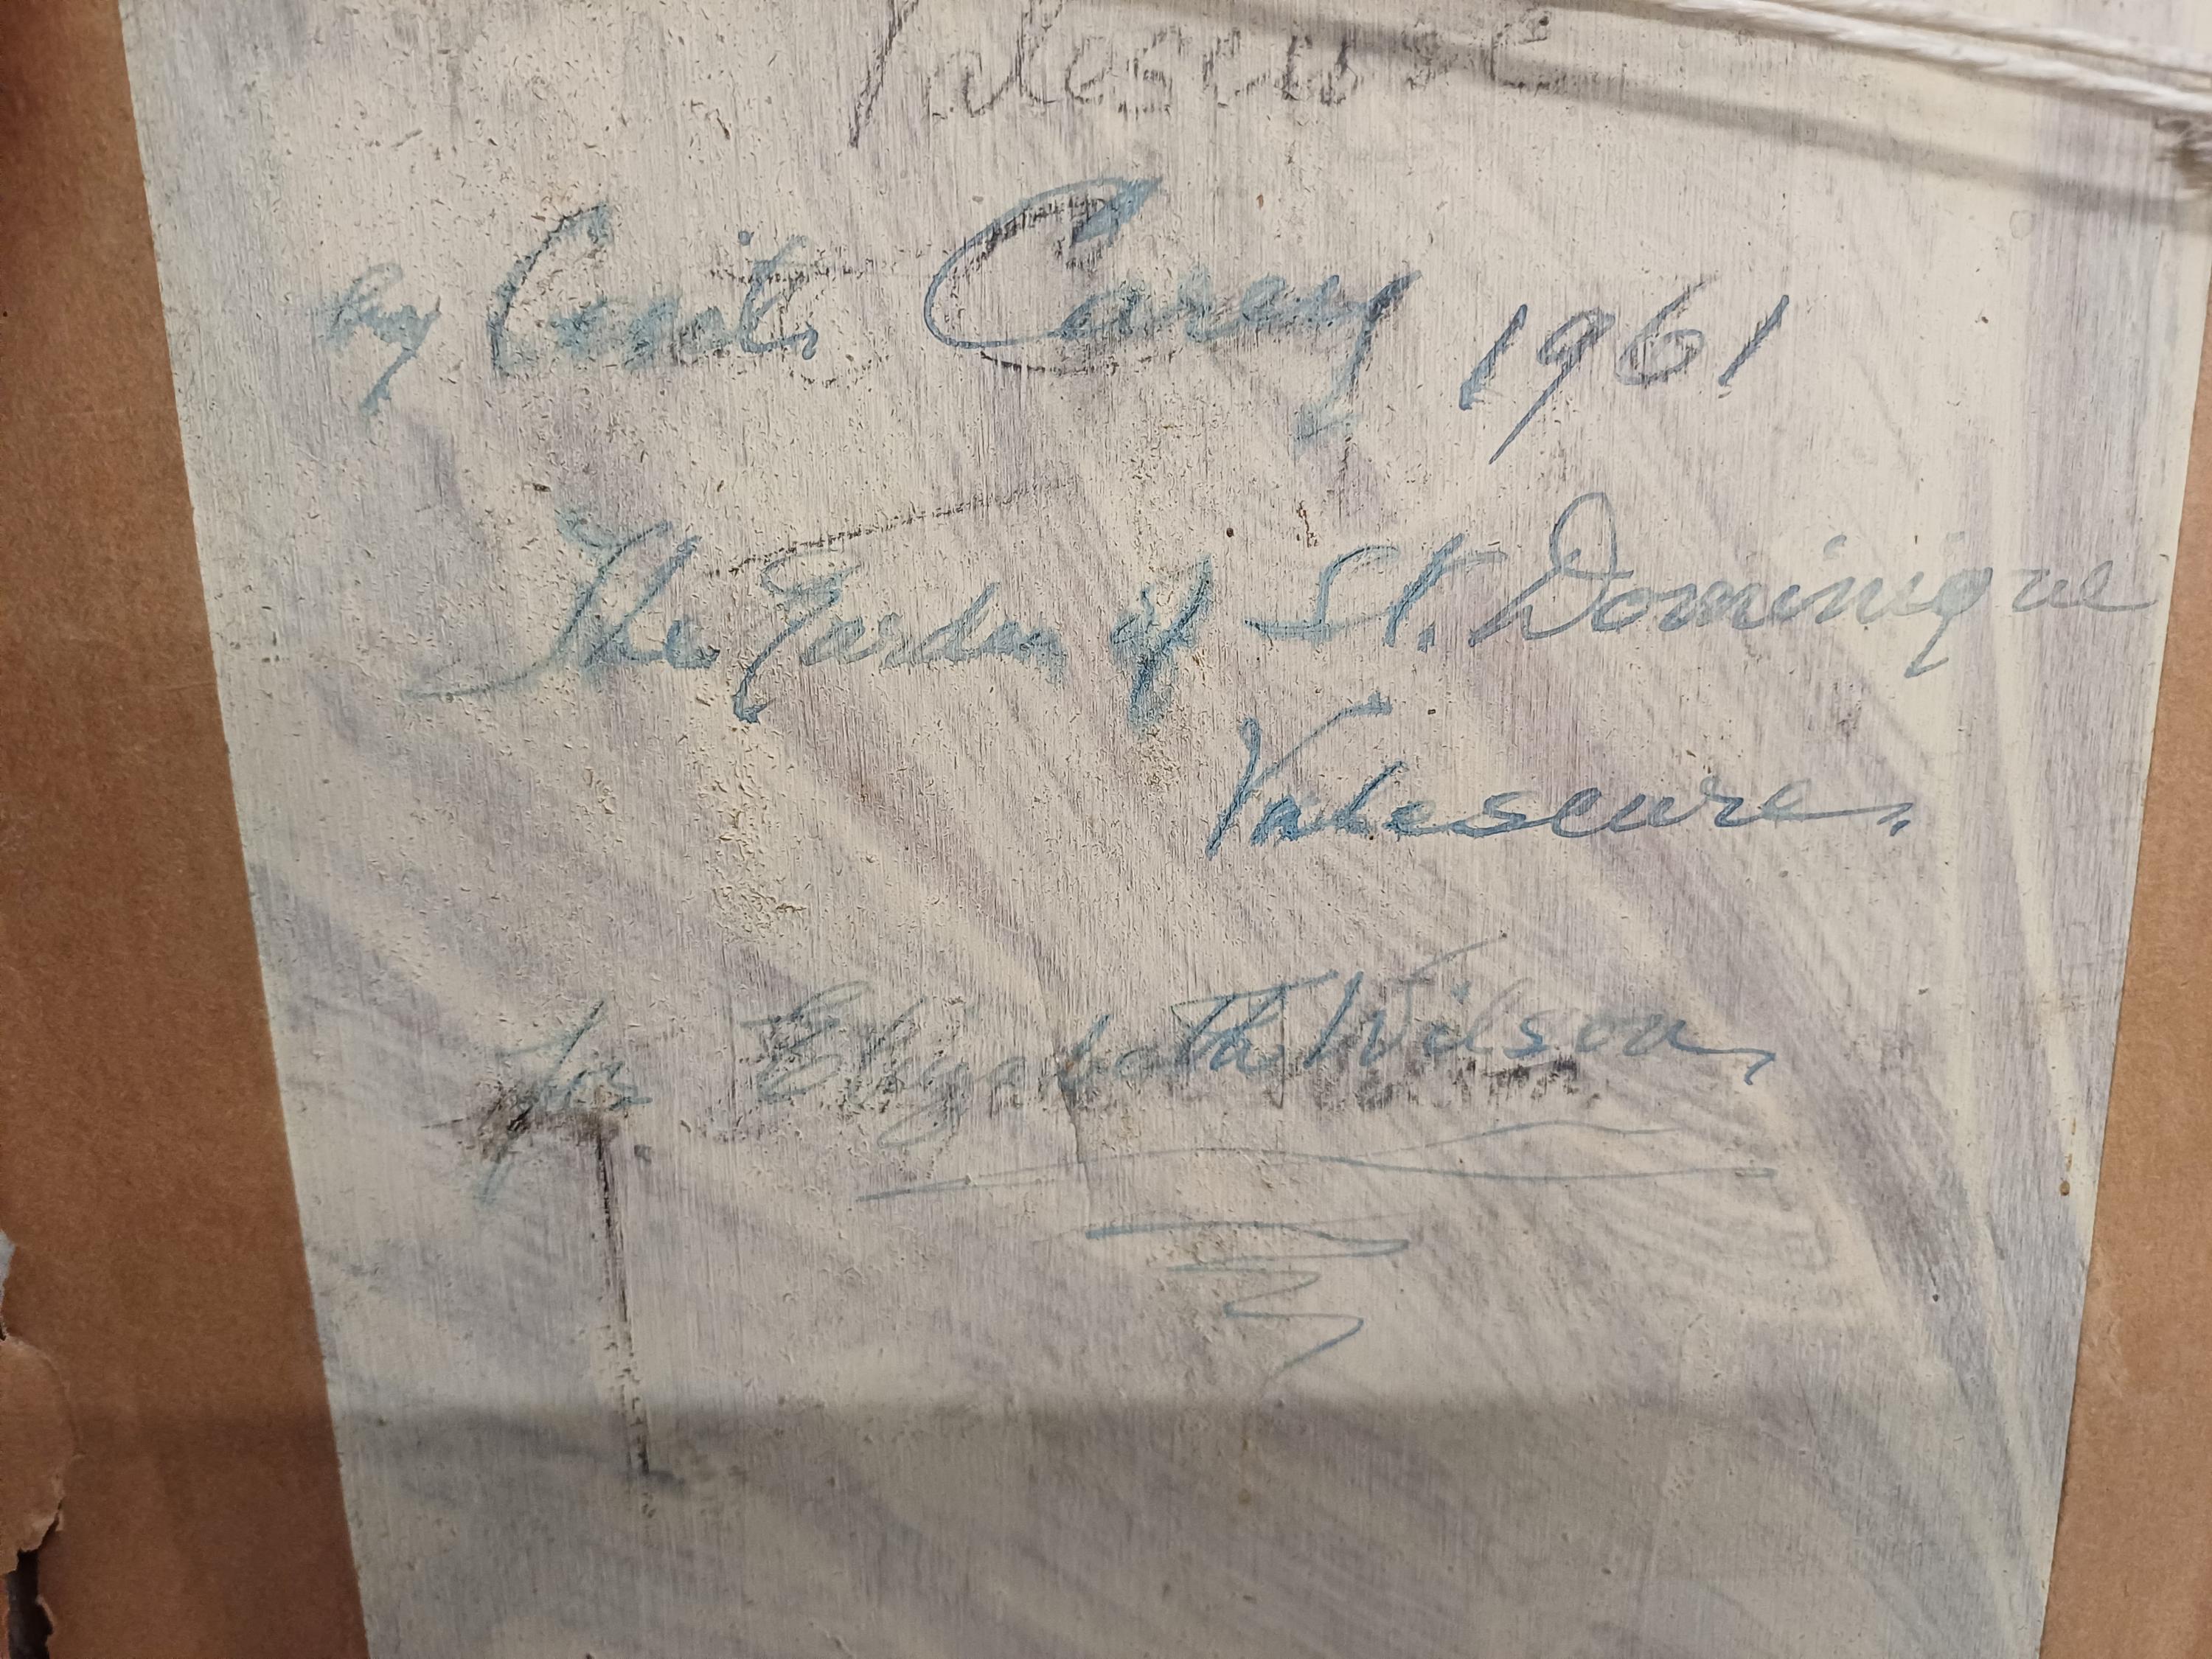 Valescure
by Cecil Carey 1961
The Garden of St. Dominique
Valescure.
for Elizabeth Wilson